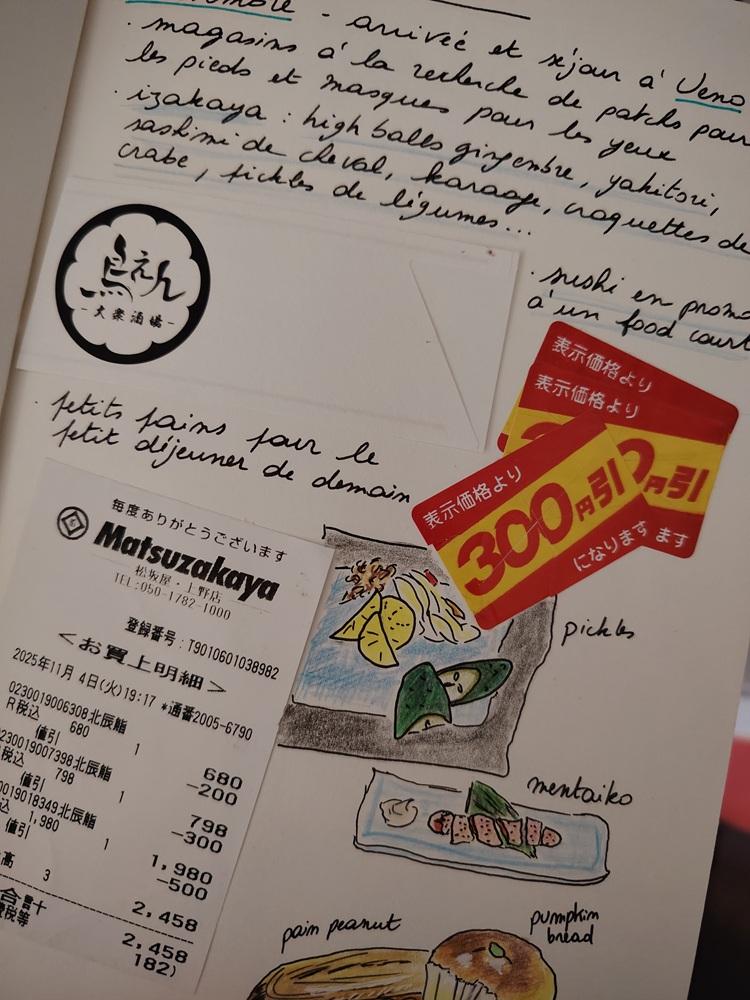 - arrivée et séjour à Ueno
· magasins à la recherche de patchs pour
les pieds et masques pour les yeux
· izakaya : high balls gingembre, yakitori,
sashimi de cheval, karaage, croquettes de
crabe, pickles de légumes...
鳥えん
-大衆酒場-
· sushi en promo
à un food court
表示価格より
表示価格より
円引
ます
表示価格より
300円引
になります
· petits pains pour le
petit déjeuner de demain
毎度ありがとうございます
Matsuzakaya
松坂屋・上野店
TEL:050-1782-1000
登録番号:T9010601038982
<お買上明細>
2025年11月 4日(火)19:17 *通番2005-6790
0230019006308北辰鮨
R税込 680 1 680
値引 -200
230019007398北辰鮨
税込 798 1 798
値引 -300
0019018349北辰鮨
込 1,980 1 1,980
値引 -500
高 3 2,458
合計 2,458
税等 182)
pickles
mentaiko
pain peanut
pumpkin
bread